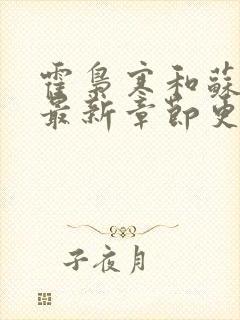 霍梟寒和蘇
最新章節更
子夜月